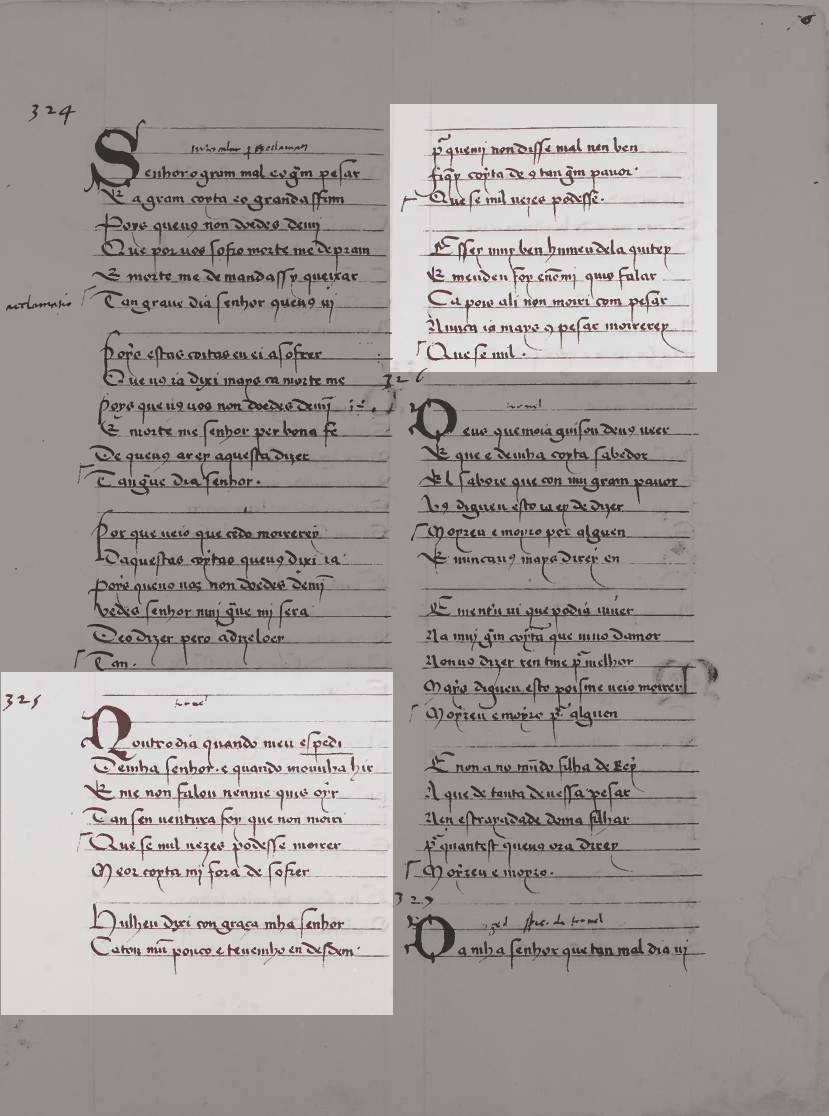 324
Senhor o gram mal e o gñ pesar
E a gram coyta e o grand affam
Poys que uꝯ non doedes demj
Que por uos sofro morte me depram
E morte me de mandassy queixar
acclamatio
Tan graue dia senhor que uꝯ uj
Poys estas coitas eu ei a sofrer
Que uꝯ ia dixi mays ca morte me
Poys que uꝯ uos non doedes demj
E morte me senhor per bona fe
De que uꝯ ar ey aquesta dizer
Tan gue dia senhor.
Por que ueio que cedo moirerey
Daquestas coytas que uꝯ dixi ia
poys que uꝯ uos non doedes demj
vedes senhor muj gue mj sera
Deo dizer pero adizeloer
Tan.
325
tornel
Noutro dia quando meu espedi
Demha senhor. e quando mouuha hir
E me non falou nenme quis oyr
Tan sen uentura foy que non moiri
Que se mil uezes podesse moirer
Meor coyta mj fora de sofrer
Hulheu dixi con graça mha senhor
Catou mui pouco e teuemho en desdem
pr quemj non disse mal nen ben
fiqy coyta de ꝯ tan gm pauor
Que se mil uezes podesse.
E ssey muy ben hu meu dela quitey
E meudeu foy enom̃i quis falar
Ca pois ali non moiri com pesar
Nunca ia mays ꝯ pesar moirerey
Que se mil.
326
tornel
O euo que moia guisou deus ueer
E que e demha coyta sabedor
El sabore que con mui gram pauor
Uꝯ digueu esto ia ey de dizer
Moyreu e moyro por alguen
E nunca uꝯ mays direy en
E mentru ui que podia uiuer
Na muj gm coyta que uiuo damor
Non uꝯ dizer ren tme pr melhor
Mays digueu esto poisme ueio moirer
Moyreu e moyro pr alguen
E non a no mundo filha de Rey
A que de tanta deuessa pesar
Nen estrayadade doma filhar
pr quantest que uꝯ ora direy
Moyreu e moyro.
327
Da mha senhor que tan mal dia uj